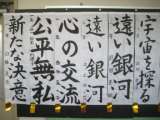 宇宙を探る
遠い銀河
遠い銀河
心の交流
公平無私
新たな決意